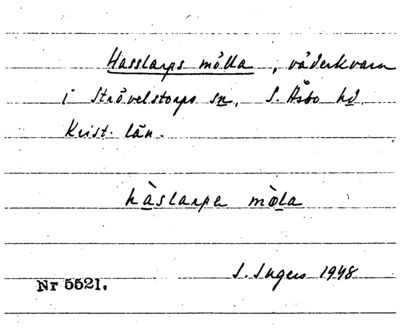 Hasslarps mölla, väderkvarn
i Strövelstorps sn, S. Åsbo hd
Krist. län.
hàslarpe mö̀la
I. Ingers 1948
Nr 5521.